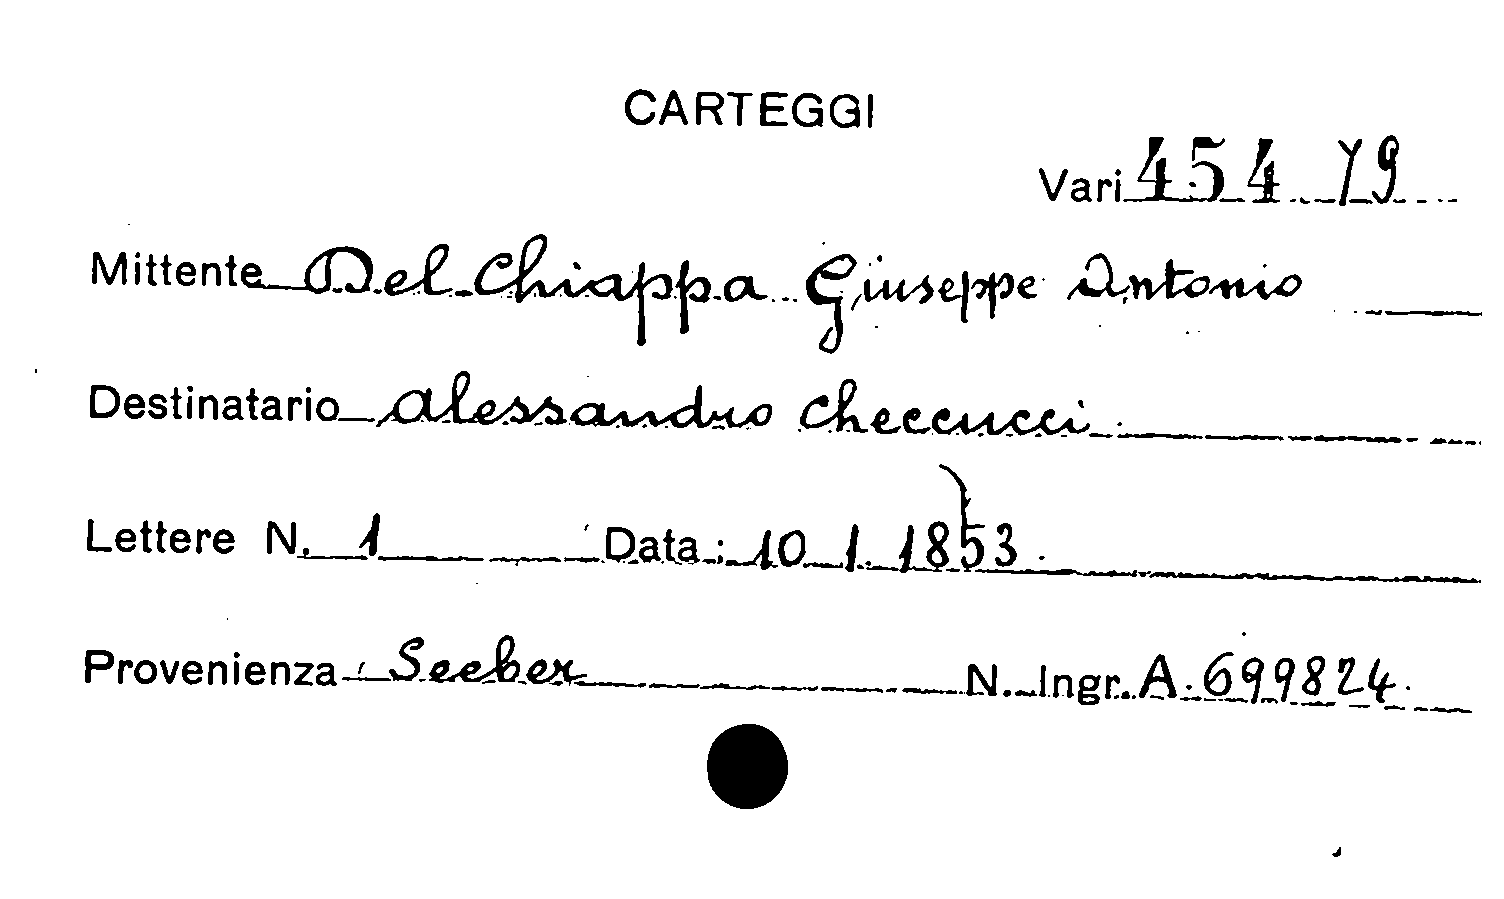 CARTEGGI
Vari 454 79
Mittente Del Chiappa Giuseppe Antonio
Destinatario Alessandro Checcucci
Lettere N. 1 Data: 10 1. 1853
Provenienza Seeber N. Ingr. A. 699824